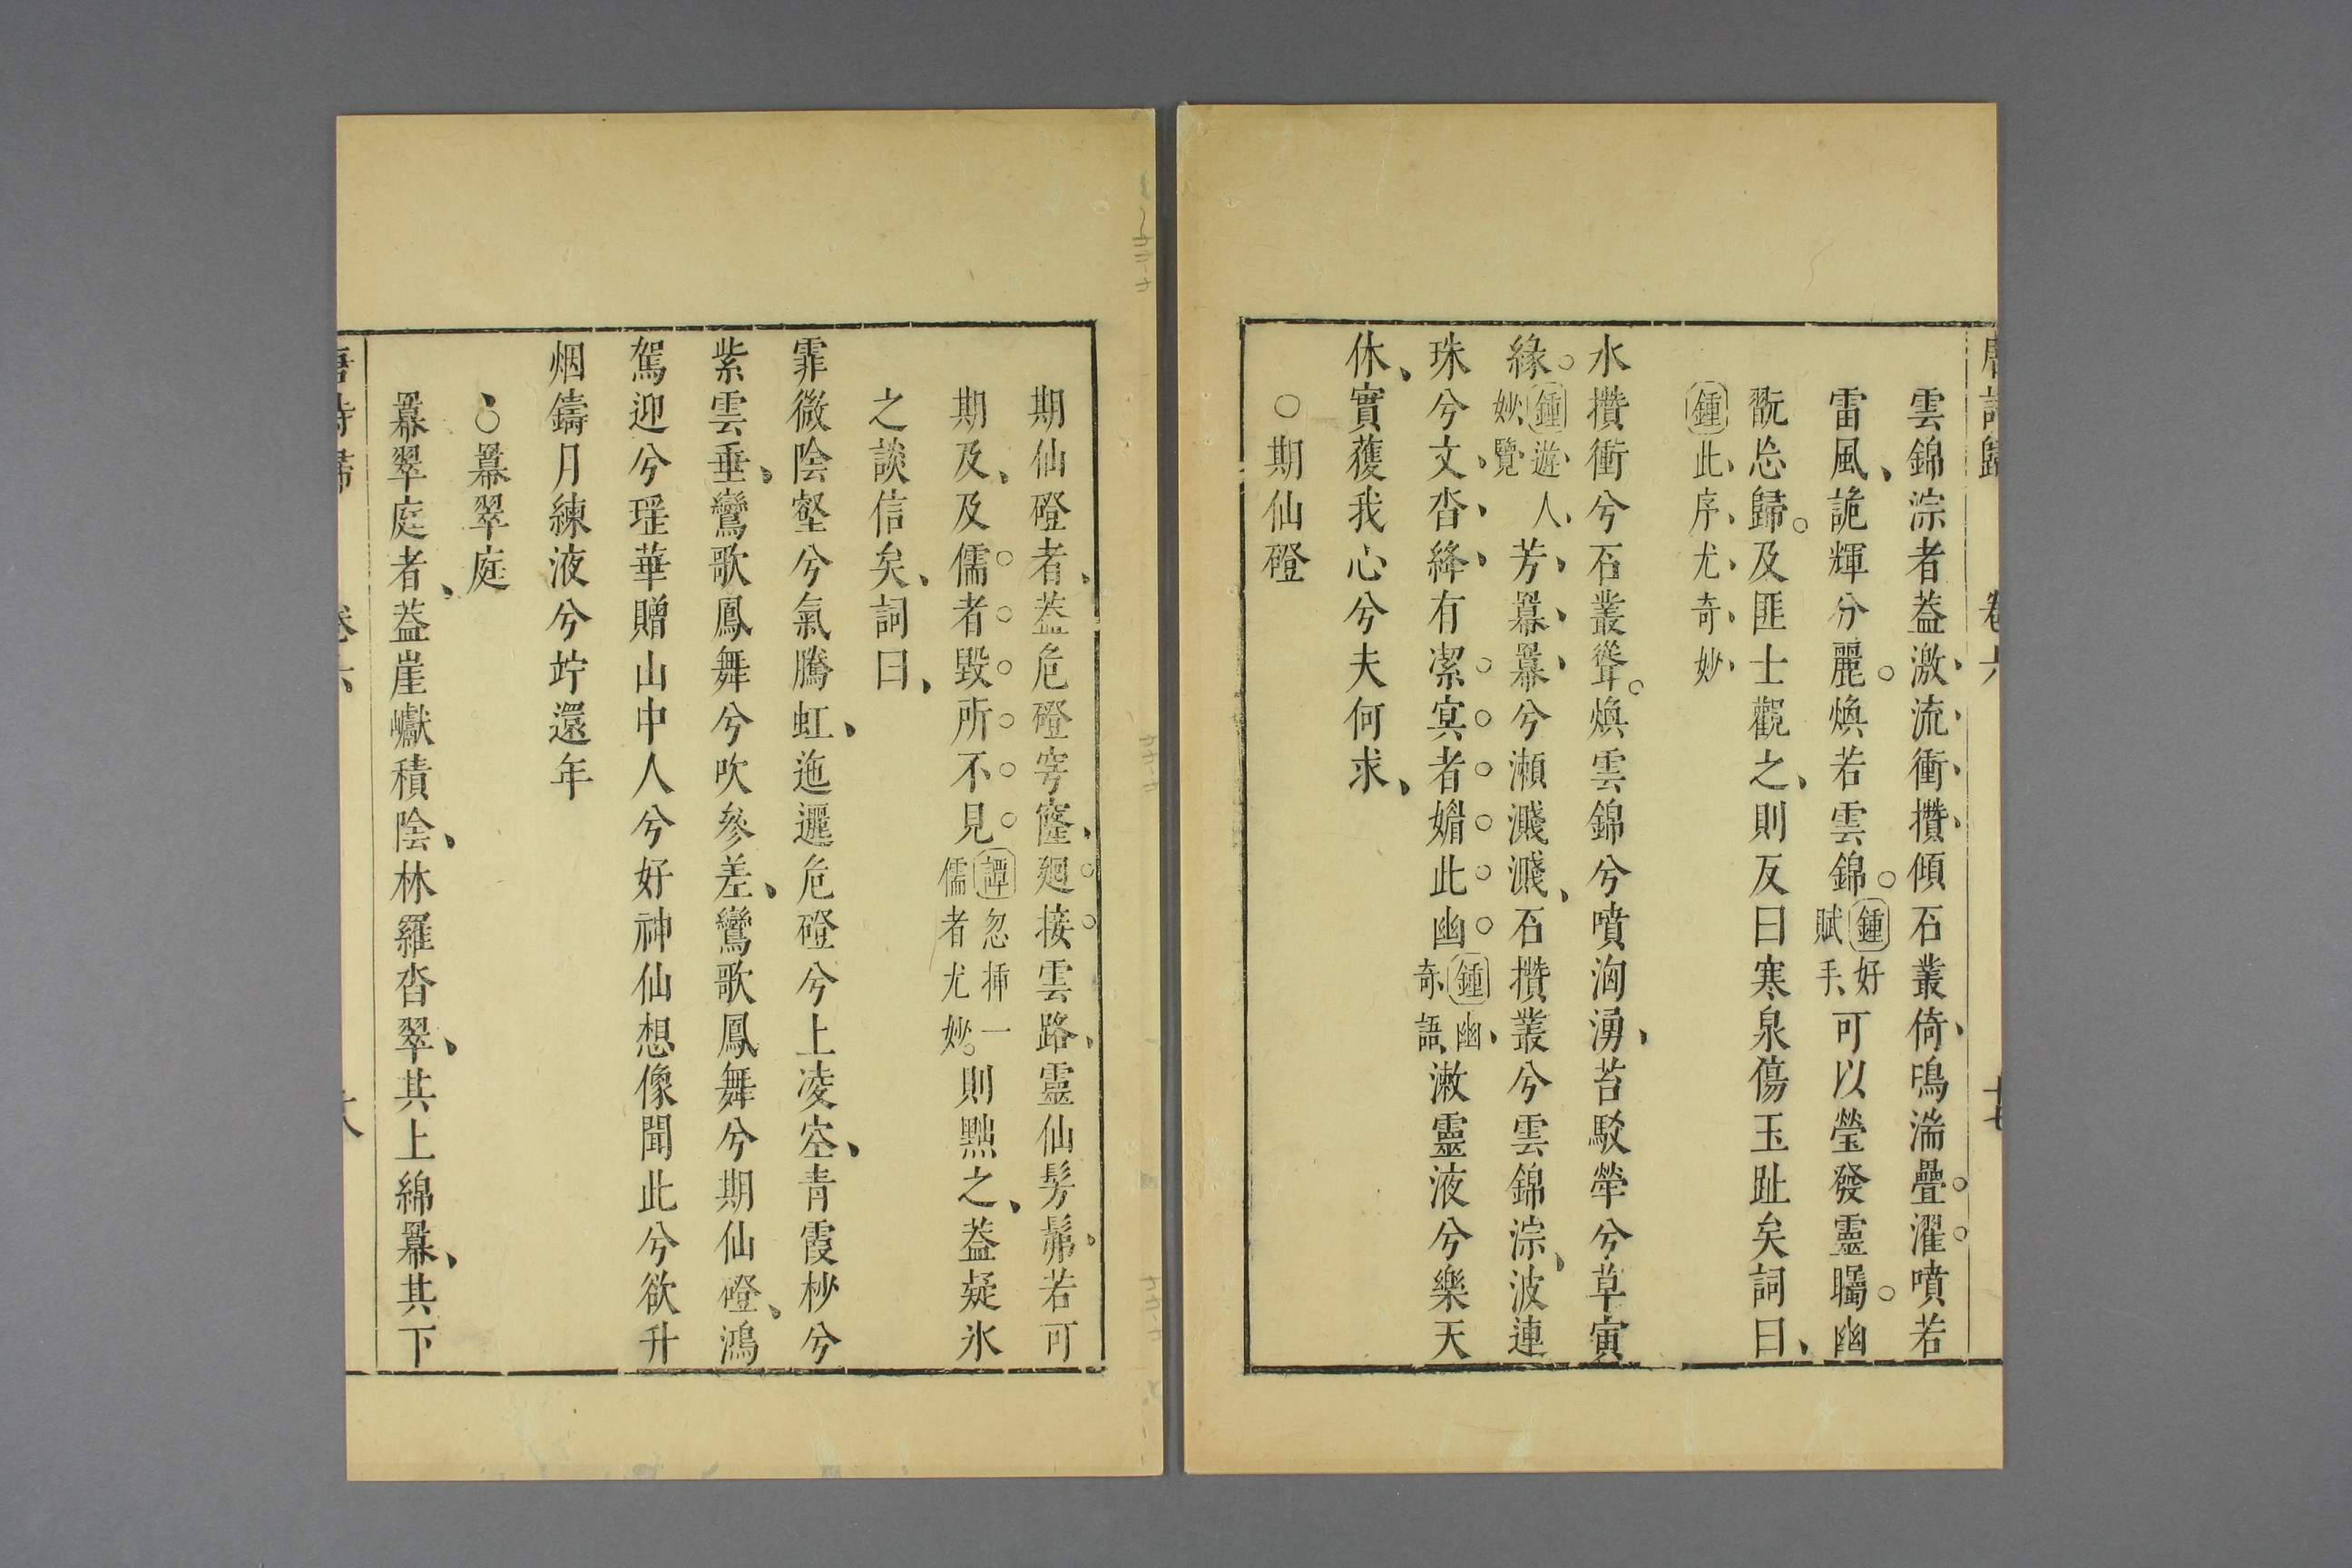 唐詩歸 卷六 十七
雲錦淙者葢激流衝攢傾石叢倚鳴湍疊濯噴若
雷風詭輝分麗煥若雲錦鍾好賦手可以瑩發靈矚幽
翫忘歸及匪士觀之則反曰寒泉傷玉趾矣詞曰
鍾此序尤奇妙
水攢衝兮石叢聳煥雲錦兮噴洶湧苔駁犖兮草夤
緣鍾遊人妙覽芳羃羃兮瀨濺濺石攢叢兮雲錦淙波連
珠兮文沓絳有潔冥者媚此幽鍾幽奇語潄靈液兮樂天
休實獲我心兮夫何求
○期仙磴
期仙磴者葢危磴穹窿廻接雲路靈仙髣髴若可
期及及儒者毀所不見譚忽揷一儒者尤妙則黜之葢疑氷
之談信矣詞曰
霏微陰壑兮氣騰虹迤邐危磴兮上凌空青霞杪兮
紫雲垂鸞歌鳳舞兮吹參差鸞歌鳳舞兮期仙磴鴻
駕迎兮瑶華贈山中人兮好神仙想像聞此兮欲升
烟鑄月練液兮竚還年
○羃翠庭
羃翠庭者葢崖巘積陰林羅沓翠其上綿羃其下
唐詩歸 卷六 十八